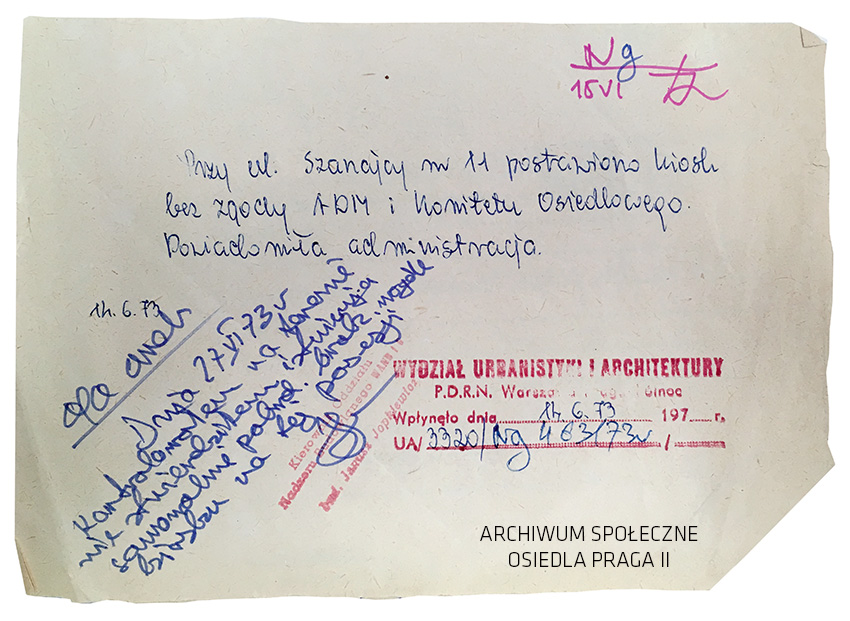 Ng
15 VI
Przy ul. Szanajcy nr 11 postawiono kiosk
bez zgody ADM i Komitetu Osiedlowego.
Powiadomiła administracja.
14.6.73
Dnia 27 VI 73 r
Kontrolowałem na terenie
nie stwierdziłem istnienia
sygnalizowanego
kiosku na tej posesji
Kierownik Oddziału
Nadzoru
Janusz
WYDZIAŁ URBANISTYKI I ARCHITEKTURY
P.D.R.N. Warszawa Praga Północ
Wpłynęło dnia 14.6.73 197 r.
UA/ 3320/Ng 463/73r /
ARCHIWUM SPOŁECZNE
OSIEDLA PRAGA II